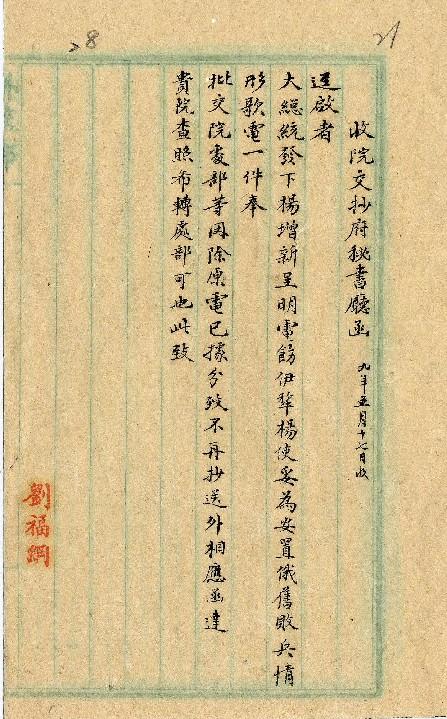 21
28
收院交抄府秘書廳函 九年五月十七日收
逕啟者
大總統發下楊增新呈明電飭伊犂楊使妥為安置俄舊敗兵情
形歌電一件奉
批交院處部等因除原電已據分致不再抄送外相應函達
貴院查照布轉處部可也此致
劉福綱